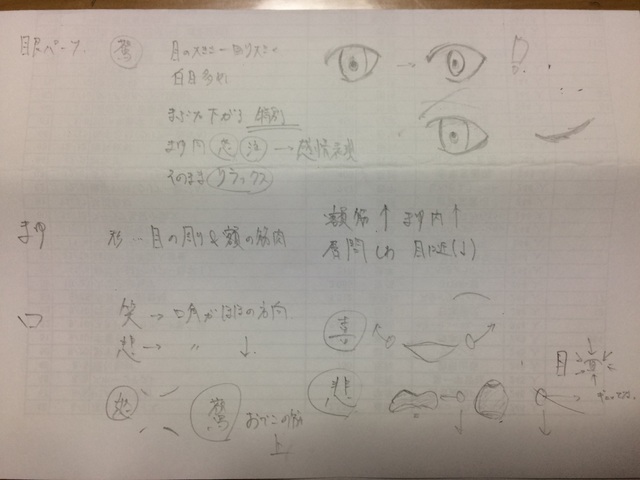 眼ベース.
驚
目の大きさ 一回り大きく
白目多め
まぶた下がる 特別
まゆ内 悲 泣 → 感情表現
そのまま リラックス
まゆ
形… 目の周り & 額の筋肉
額筋↑ まゆ内↑
眉間しわ 目に近(↓)
口
笑 → 口角がほほの方向
悲 → 〃 ↓
喜
悲
目
怒
驚
おでこの
上